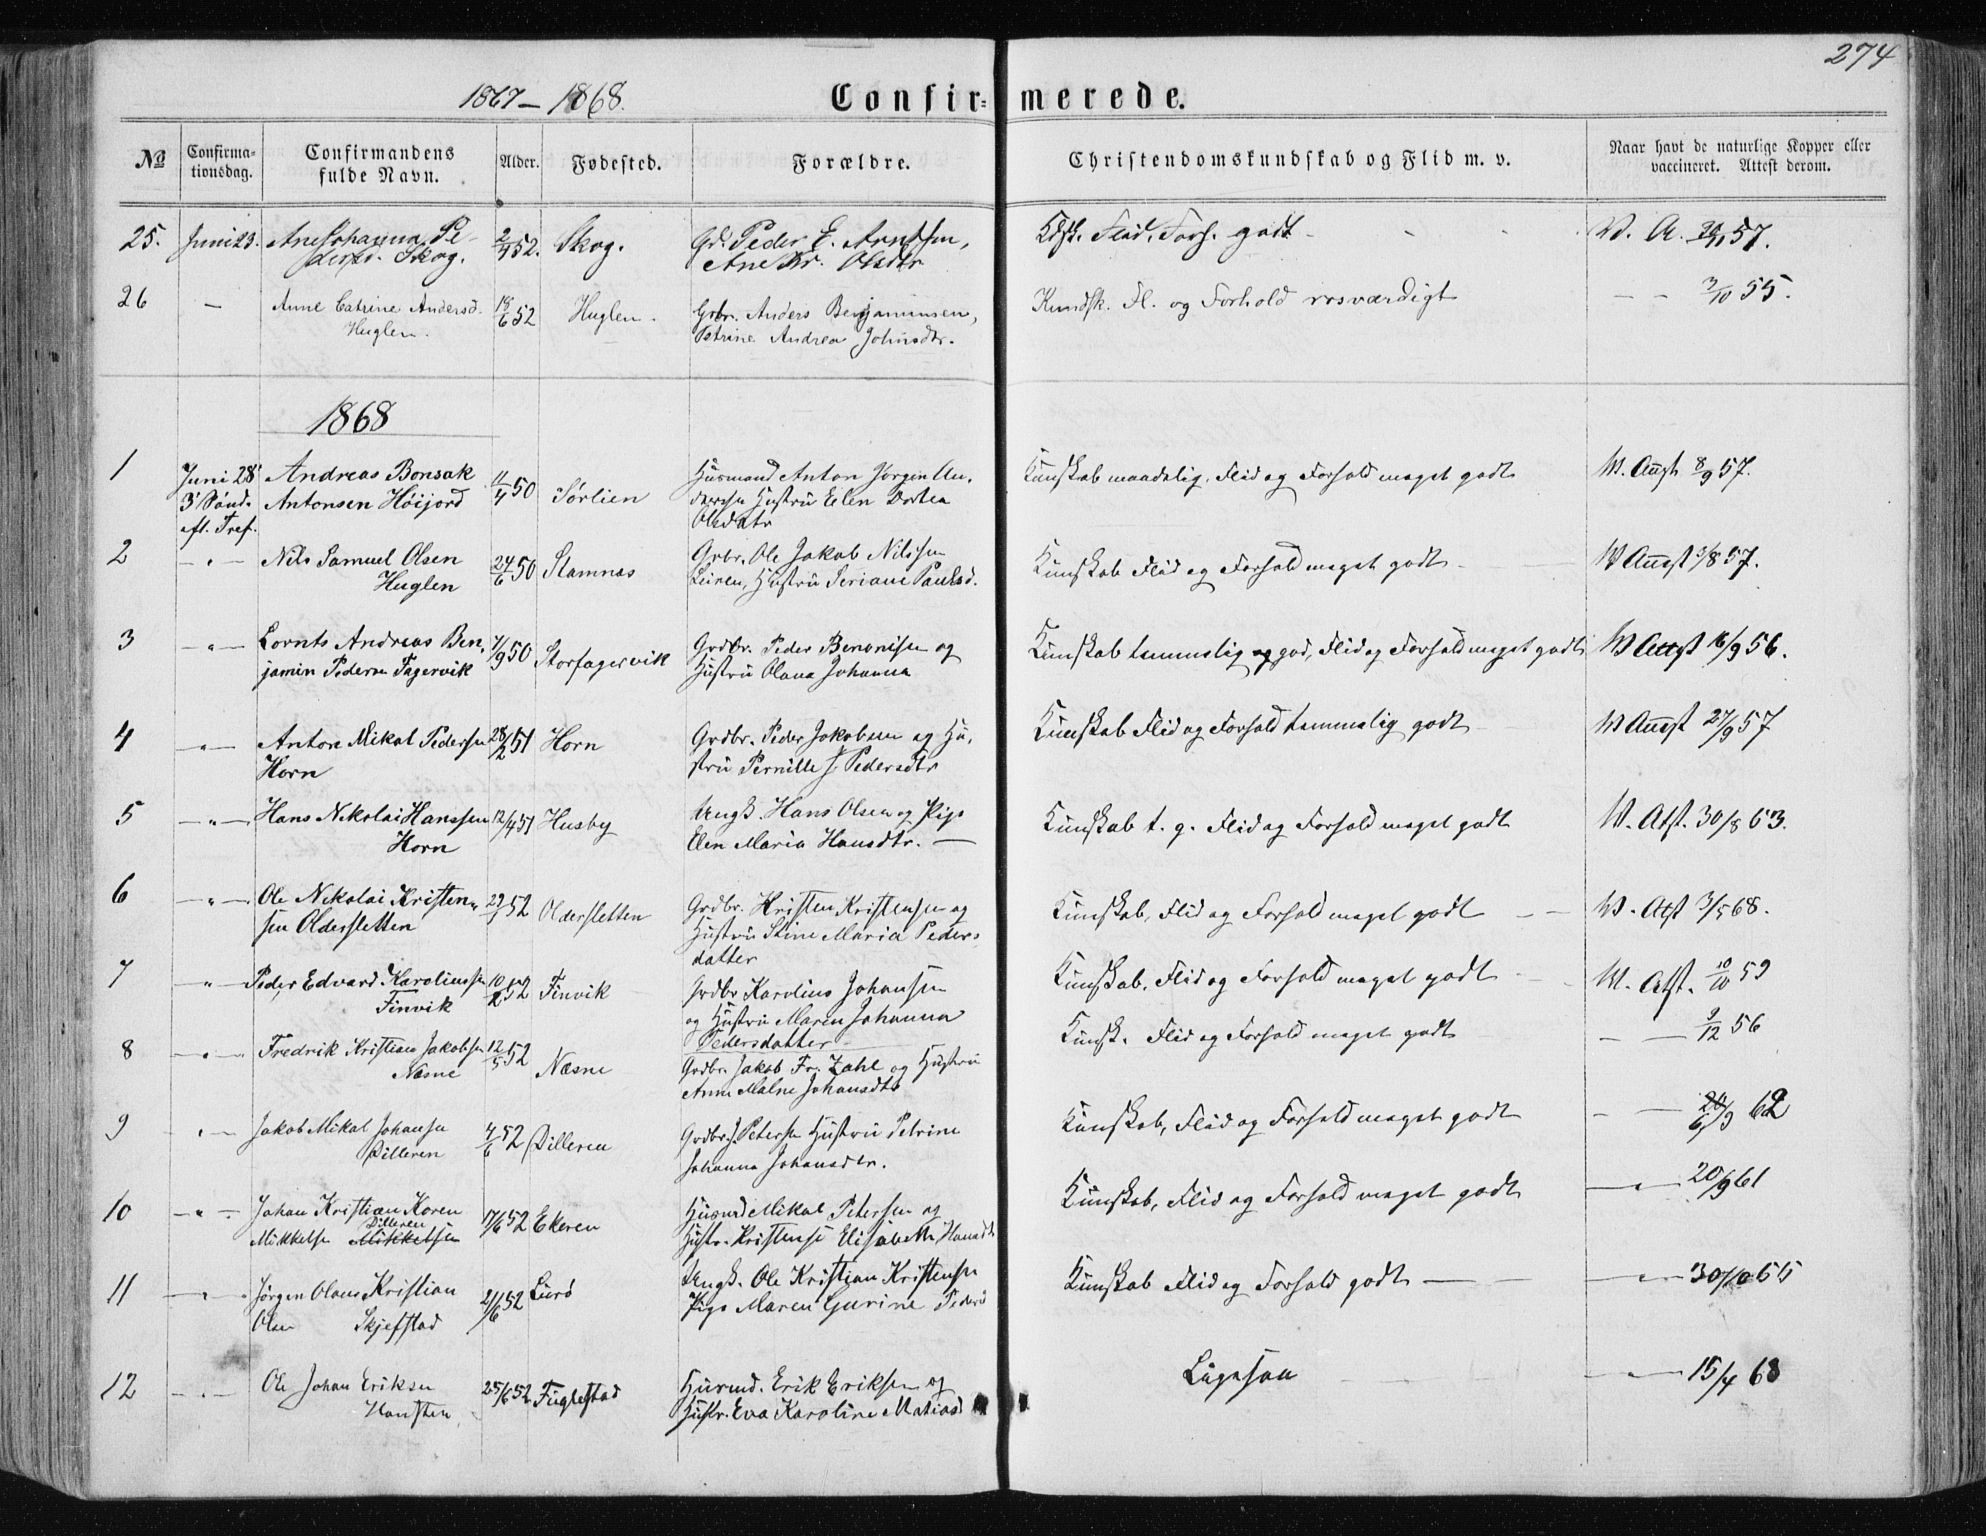 274
1867 - 1868.
Confir= merede.
No Confirma-tionsdag. Confirmandens fulde Navn. Alder. Fødested. Forældre. Christendomskundskab og Flid m. v. Naar havt de naturlige Kopper eller vaccineret. Attest derom.
25. Juni 23. Ane Johanna Pe- 2/4 52. Skog. Gd. Peder E. Arntsen, Kdsk. Flid, Forh. godt - V. A. 57.
dersd. Skog. Ane Kr. Olsdtr
26 — Anne Catrine Andersd. 18/6 52 Huglen. Grbr. Anders Benjaminsen, Kundsk. Fl. og Forhold rosværdigt — — 3/10 55.
Huglen. Petrine Andrea Johnsdtr.
1868
1 Juni 28' Andreas Bonsak 11/4 50 Sørlien Husmand Anton Jørgen An- Kunskab maadelig, Flid og Forhold meget godt V. Attst 8/9 57.
3' Sønd. Antonsen Höijord dersen Hustru Elen Dortea
eft. Tref. Olsdatr
2 —"— Nils Samuel Olsen 24/6 50 Stamnæs Grbr. Ole Jakob Nilssen Kunskab Flid og Forhold meget godt V Attest 3/8 57.
Huglen Leiren, Hustru Seriane Paulsd.
3 "— Lornts Andreas Ben- 7/9 50 Storfagervik Grdbr. Peder Benonisen og Kunskab temmelig god, Flid og Forhold meget godt V Attst 16/9 56.
jamin Pedersen Fagervik Hustru Olava Johanna
4 "— Anton Mikal Pedersen 28/2 51 Horn Grdbr. Peder Jakobsen og Hu- Kunskab Flid og Forhold temmelig godt V Attest 27/9 57
Horn stru Pernille J. Pedersdtr
5 —"— Hans Nikolai Hanssen 12/4 51 Husby Ungk. Hans Olsen og Pige Kunskab t. g. Flid og Forhold meget godt V. Atst. 30/8 63.
Horn Elen Maria Hansdtr. —
6 —"— Ole Nikolai Kristen- 29/1 52 Oldersletten Grdbr. Kristen Kristensen og Kunskab, Flid og Forhold meget godt — — V. Atst 3/5 68.
sen Oldersletten Hustru Stine Maria Peders-
datter
7 "— Peder Edvard Karolinssen 10/2 52 Finvik Grdbr Karolius Johansen Kunskab, Flid og Forhold meget godt V. Atst. 10/10 59
Finvik og Hustru Maren Johanna
Pedersdatter
8 —"— Fredrik Kristian Jakobsen 12/5 52 Næsne Grdbr. Jakob Fr. Zahl og Hustru Kunsk. Flid og Forhold meget godt — — 9/12 56
Næsne Anne Malne Johansdtr
9 —"— Jakob Mikal Johansen 4/6 52 Dilleren Grdbr. J. Petersen Hustru Petrine Kunskab, Flid og Forhold meget godt — — 6/9 62
Dilleren Johanna Johansdtr.
10 —"— Johan Kristian Koren 17/6 52 Ekeren Husmd Mikal Petersen og Kunskab, Flid og Forhold meget godt —"— 20/9 61
Dilleren
Mikkelsen Mikkelsen Hustr. Kristense Elisabeth Hansdtr
11 —"— Jørgen Olaus Kristian 21/6 52 Lurö Ungk. Ole Kristian Kristensen Kunskab Flid og Forhold godt — —"— 30/10 66
Olsen Skjefstad Pige Maren Gurine Peders
12 —"— Ole Johan Eriksen 25/6 52 Fuglestad Husmd. Erik Eriksen og Ligesaa —"— 15/4 68
Hansten Hustr. Eva Karoline Matiasd